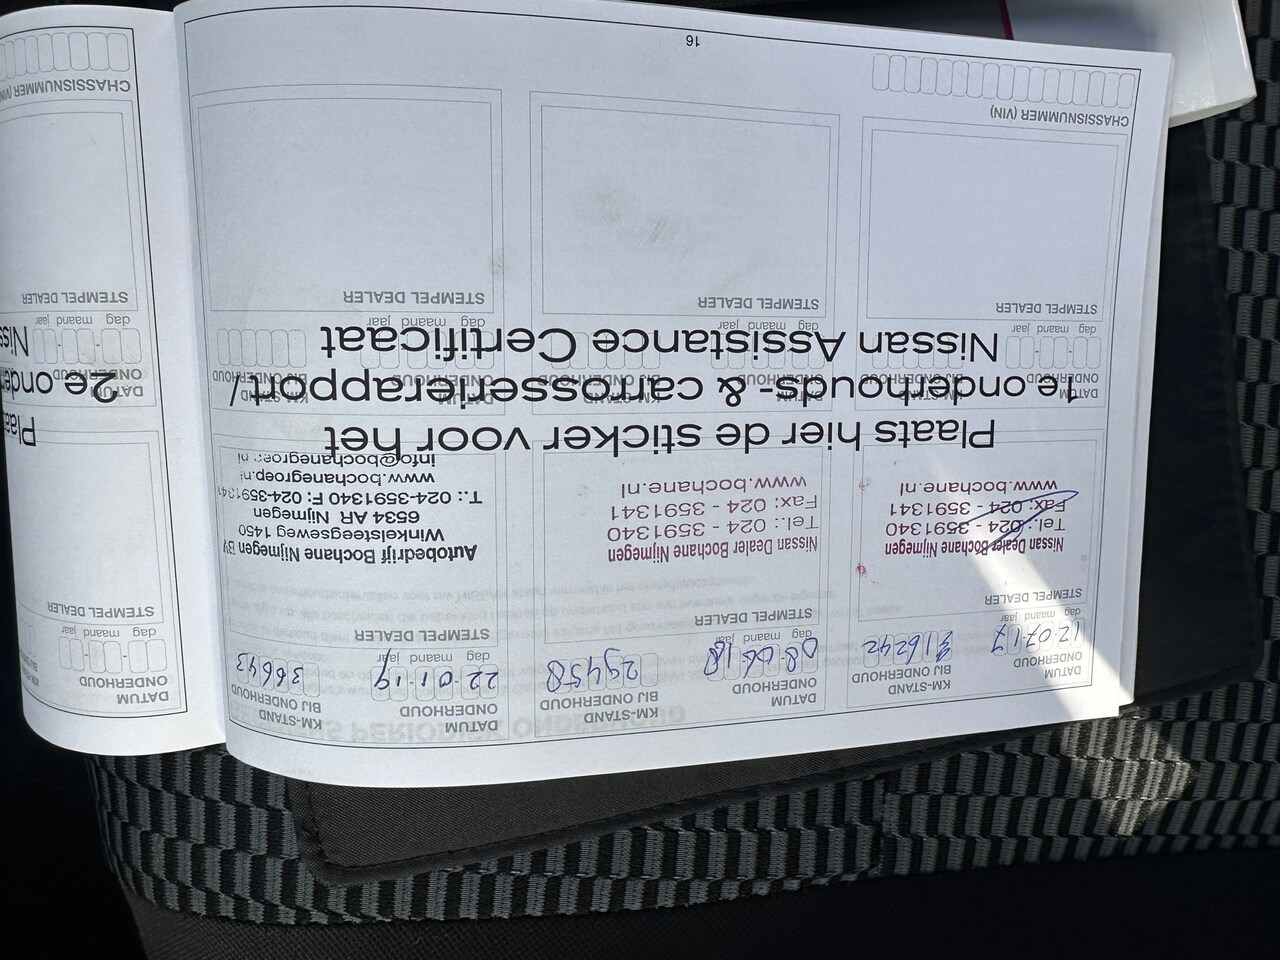 DATUM
ONDERHOUD
12-07-17
dag maand jaar
KM-STAND
BIJ ONDERHOUD
16242
STEMPEL DEALER
Nissan Dealer Bochane Nijmegen
Tel.: 024 - 3591340
Fax: 024 - 3591341
www.bochane.nl
DATUM
ONDERHOUD
08-06-18
dag maand jaar
KM-STAND
BIJ ONDERHOUD
29458
STEMPEL DEALER
Nissan Dealer Bochane Nijmegen
Tel.: 024 - 3591340
Fax: 024 - 3591341
www.bochane.nl
DATUM
ONDERHOUD
22-01-19
dag maand jaar
KM-STAND
BIJ ONDERHOUD
36643
STEMPEL DEALER
Autobedrijf Bochane Nijmegen BV
Winkelsteegseweg 1450
6534 AR Nijmegen
T.: 024-3591340 F: 024-3591341
www.bochanegroep.nl
info@bochanegroep.nl
Plaats hier de sticker voor het
1e onderhouds- & carrosserierapport /
Nissan Assistance Certificaat
DATUM
ONDERHOUD
dag maand jaar
KM-STAND
BIJ ONDERHOUD
STEMPEL DEALER
DATUM
ONDERHOUD
dag maand jaar
KM-STAND
BIJ ONDERHOUD
STEMPEL DEALER
DATUM
ONDERHOUD
dag maand jaar
KM-STAND
BIJ ONDERHOUD
STEMPEL DEALER
CHASSISNUMMER (VIN)
16
DATUM
ONDERHOUD
dag maand jaar
STEMPEL DEALER
2e
DATUM
ONDERHOUD
dag maand jaar
STEMPEL DEALER
CHASSISNUMMER (VIN)